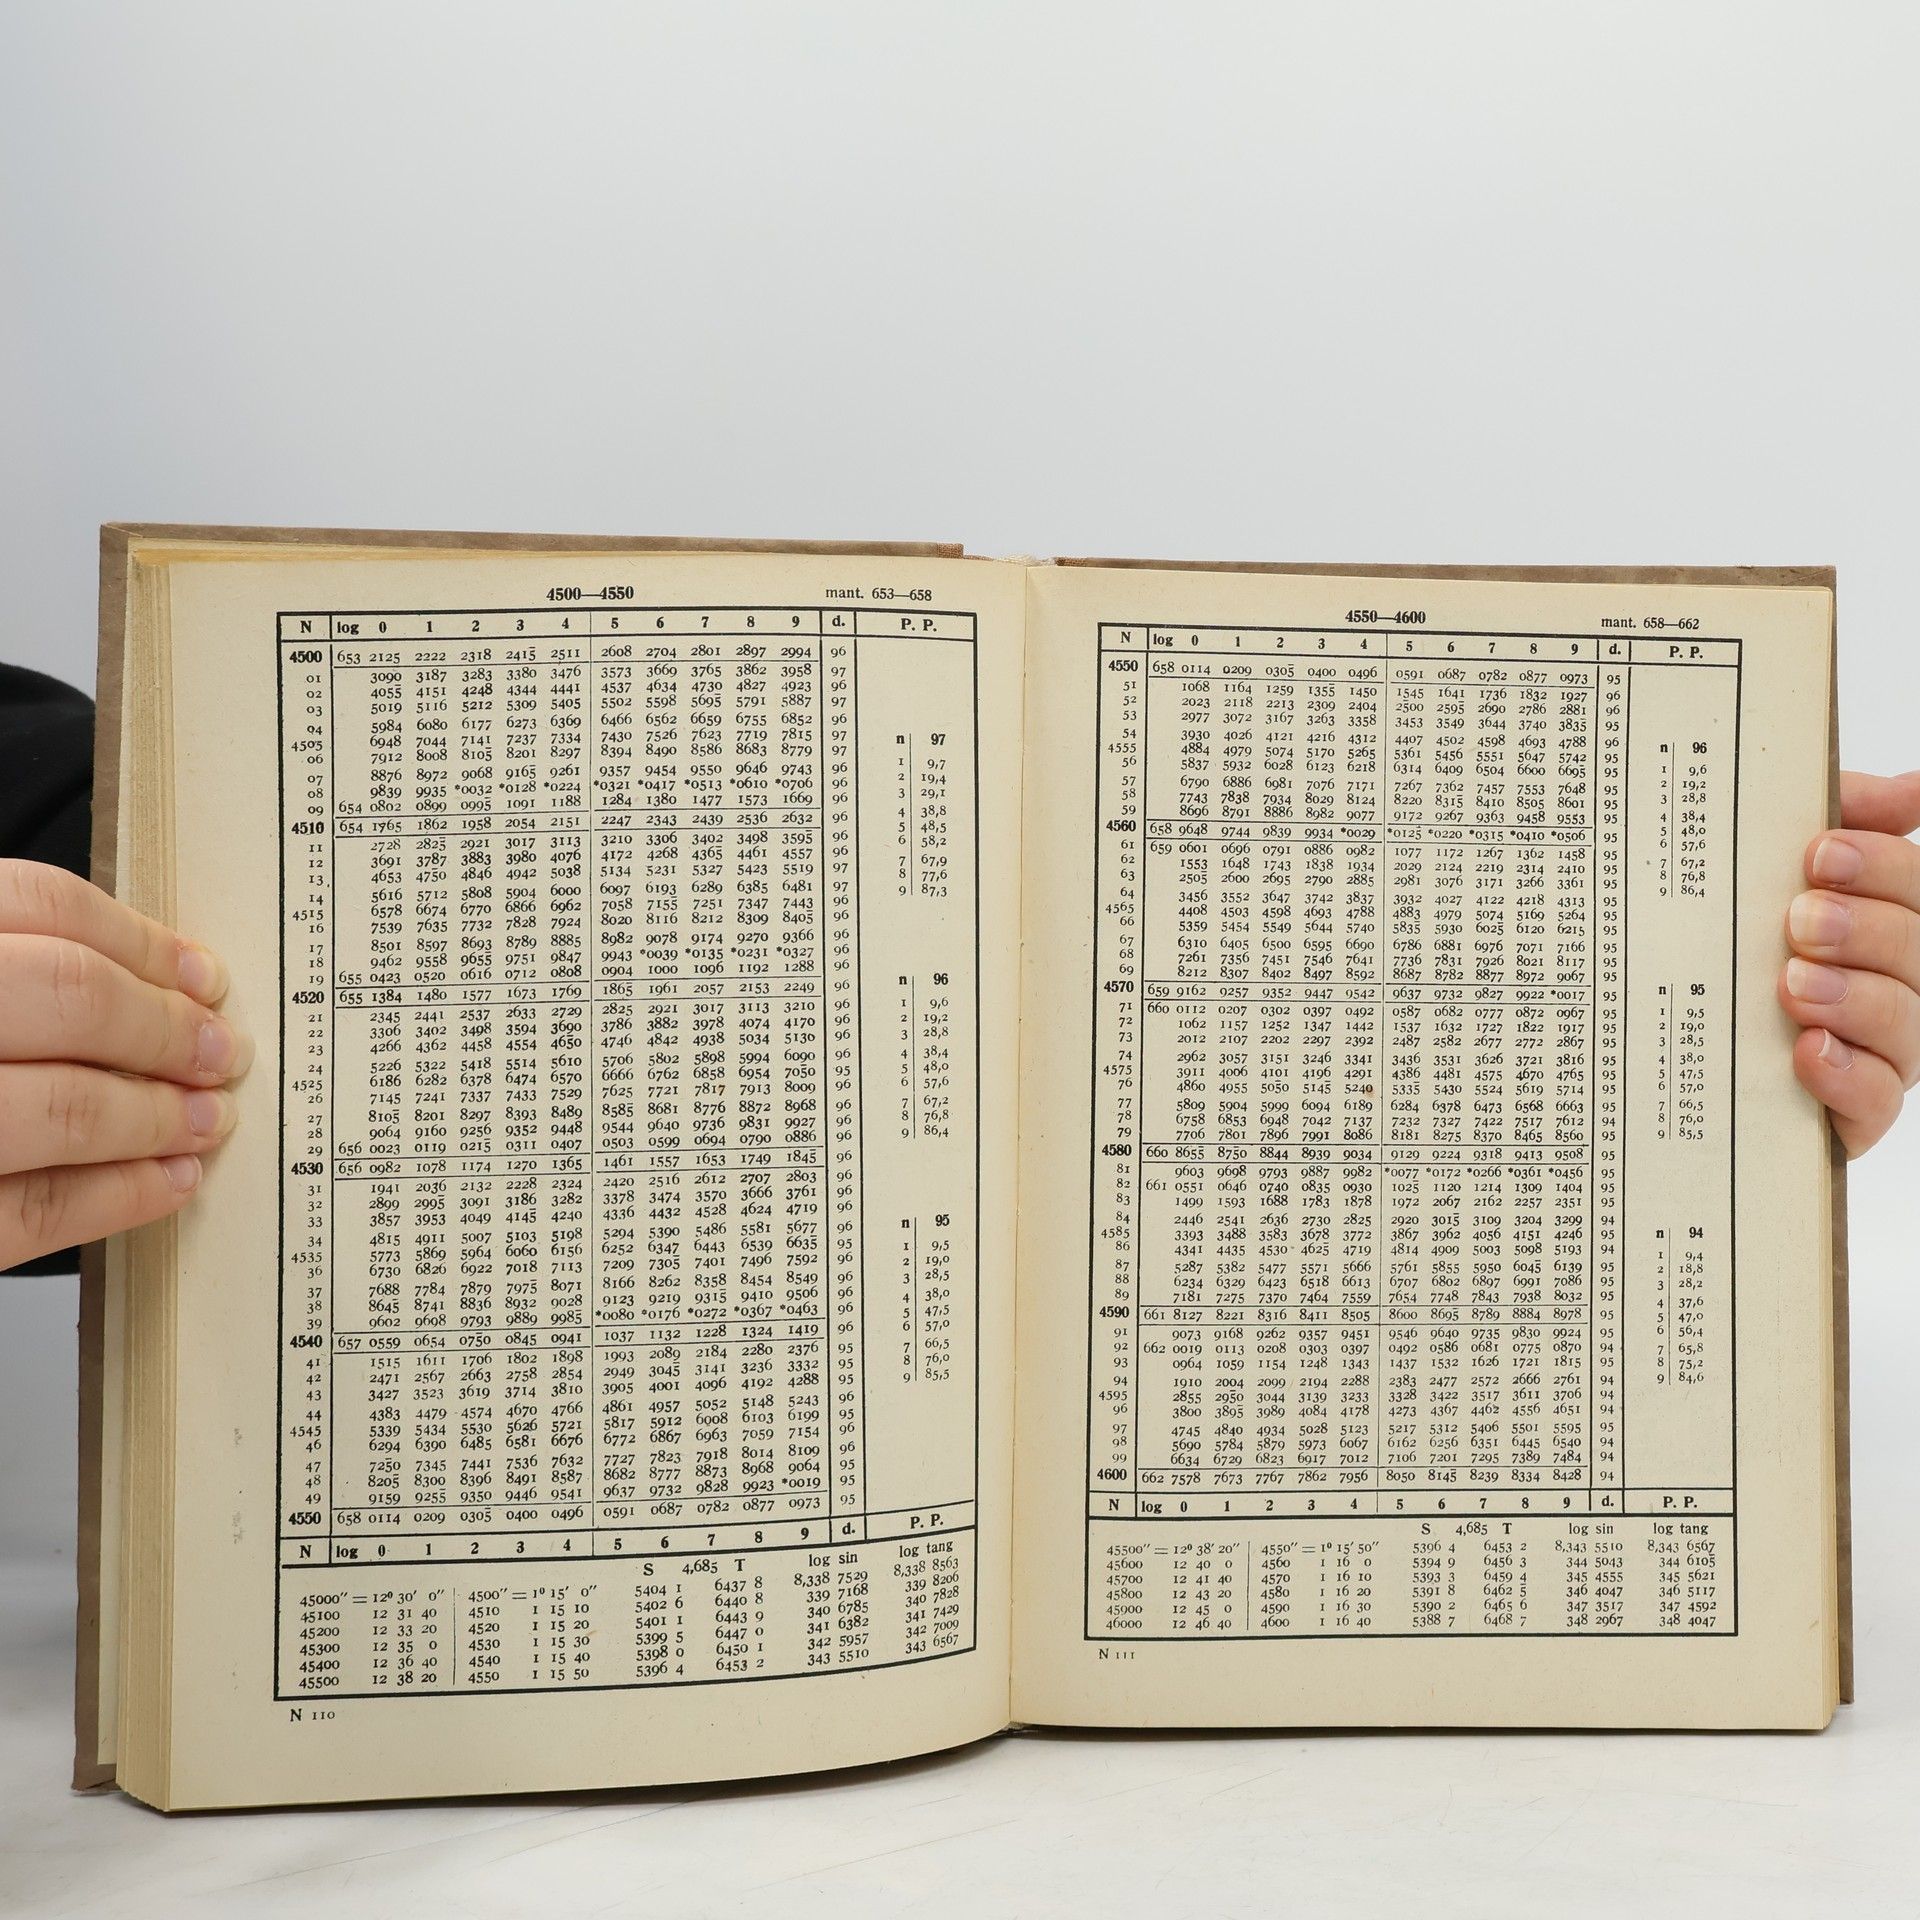 4500—4550 mant. 653—658
N log 0 1 2 3 4 5 6 7 8 9 d. P. P.
4500 653 2125 2222 2318 2415 2511 2608 2704 2801 2897 2994 96
01 3090 3187 3283 3380 3476 3573 3669 3765 3862 3958 97
02 4055 4151 4248 4344 4441 4537 4634 4730 4827 4923 96
03 5019 5116 5212 5309 5405 5502 5598 5695 5791 5887 97
04 5984 6080 6177 6273 6369 6466 6562 6659 6755 6852 96
4505 6948 7044 7141 7237 7334 7430 7526 7623 7719 7815 97
06 7912 8008 8105 8201 8297 8394 8490 8586 8683 8779 97
07 8876 8972 9068 9165 9261 9357 9454 9550 9646 9743 96
08 9839 9935 *0032 *0128 *0224 *0321 *0417 *0513 *0610 *0706 96
09 654 0802 0899 0995 1091 1188 1284 1380 1477 1573 1669 96
4510 654 1765 1862 1958 2054 2151 2247 2343 2439 2536 2632 96
11 2728 2825 2921 3017 3113 3210 3306 3402 3498 3595 96
12 3691 3787 3883 3980 4076 4172 4268 4365 4461 4557 96
13 4653 4750 4846 4942 5038 5134 5231 5327 5423 5519 97
14 5616 5712 5808 5904 6000 6097 6193 6289 6385 6481 97
4515 6578 6674 6770 6866 6962 7058 7155 7251 7347 7443 96
16 7539 7635 7732 7828 7924 8020 8116 8212 8309 8405 96
17 8501 8597 8693 8789 8885 8982 9078 9174 9270 9366 96
18 9462 9558 9655 9751 9847 9943 *0039 *0135 *0231 *0327 96
19 655 0423 0520 0616 0712 0808 0904 1000 1096 1192 1288 96
4520 655 1384 1480 1577 1673 1769 1865 1961 2057 2153 2249 96
21 2345 2441 2537 2633 2729 2825 2921 3017 3113 3210 96
22 3306 3402 3498 3594 3690 3786 3882 3978 4074 4170 96
23 4266 4362 4458 4554 4650 4746 4842 4938 5034 5130 96
24 5226 5322 5418 5514 5610 5706 5802 5898 5994 6090 96
4525 6186 6282 6378 6474 6570 6666 6762 6858 6954 7050 95
26 7145 7241 7337 7433 7529 7625 7721 7817 7913 8009 96
27 8105 8201 8297 8393 8489 8585 8681 8776 8872 8968 96
28 9064 9160 9256 9352 9448 9544 9640 9736 9831 9927 96
29 656 0023 0119 0215 0311 0407 0503 0599 0694 0790 0886 96
4530 656 0982 1078 1174 1270 1365 1461 1557 1653 1749 1845 96
31 1941 2036 2132 2228 2324 2420 2516 2612 2707 2803 96
32 2899 2995 3091 3186 3282 3378 3474 3570 3666 3761 96
33 3857 3953 4049 4145 4240 4336 4432 4528 4624 4719 96
34 4815 4911 5007 5103 5198 5294 5390 5486 5581 5677 96
4535 5773 5869 5964 6060 6156 6252 6347 6443 6539 6635 95
36 6730 6826 6922 7018 7113 7209 7305 7401 7496 7592 96
37 7688 7784 7879 7975 8071 8166 8262 8358 8454 8549 96
38 8645 8741 8836 8932 9028 9123 9219 9315 9410 9506 96
39 9602 9698 9793 9889 9985 *0080 *0176 *0272 *0367 *0463 96
4540 657 0559 0654 0750 0845 0941 1037 1132 1228 1324 1419 96
41 1515 1611 1706 1802 1898 1993 2089 2184 2280 2376 95
42 2471 2567 2663 2758 2854 2949 3045 3141 3236 3332 95
43 3427 3523 3619 3714 3810 3905 4001 4096 4192 4288 95
44 4383 4479 4574 4670 4766 4861 4957 5052 5148 5243 96
4545 5339 5434 5530 5626 5721 5817 5912 6008 6103 6199 95
46 6294 6390 6485 6581 6676 6772 6867 6963 7059 7154 96
47 7250 7345 7441 7536 7632 7727 7823 7918 8014 8109 96
48 8205 8300 8396 8491 8587 8682 8777 8873 8968 9064 95
49 9159 9255 9350 9446 9541 9637 9732 9828 9923 *0019 95
4550 658 0114 0209 0305 0400 0496 0591 0687 0782 0877 0973 95
n 97
1 9,7
2 19,4
3 29,1
4 38,8
5 48,5
6 58,2
7 67,9
8 77,6
9 87,3
n 96
1 9,6
2 19,2
3 28,8
4 38,4
5 48,0
6 57,6
7 67,2
8 76,8
9 86,4
n 95
1 9,5
2 19,0
3 28,5
4 38,0
5 47,5
6 57,0
7 66,5
8 76,0
9 85,5
N log 0 1 2 3 4 5 6 7 8 9 d. P. P.
S 4,685 T log sin log tang
45000″ = 12° 30′ 0″ 4500″ = 1° 15′ 0″ 5404 1 6437 8 8,338 7529 8,338 8563
45100 12 31 40 4510 1 15 10 5402 6 6440 8 339 7168 339 8206
45200 12 33 20 4520 1 15 20 5401 1 6443 9 340 6785 340 7828
45300 12 35 0 4530 1 15 30 5399 5 6447 0 341 6382 341 7429
45400 12 36 40 4540 1 15 40 5398 0 6450 1 342 5957 342 7009
45500 12 38 20 4550 1 15 50 5396 4 6453 2 343 5510 343 6567
N 110
4550—4600 mant. 658—662
N log 0 1 2 3 4 5 6 7 8 9 d. P. P.
4550 658 0114 0209 0305 0400 0496 0591 0687 0782 0877 0973 95
51 1068 1164 1259 1355 1450 1545 1641 1736 1832 1927 96
52 2023 2118 2213 2309 2404 2500 2595 2690 2786 2881 96
53 2977 3072 3167 3263 3358 3453 3549 3644 3740 3835 95
54 3930 4026 4121 4216 4312 4407 4502 4598 4693 4788 96
4555 4884 4979 5074 5170 5265 5361 5456 5551 5647 5742 95
56 5837 5932 6028 6123 6218 6314 6409 6504 6600 6695 95
57 6790 6886 6981 7076 7171 7267 7362 7457 7553 7648 95
58 7743 7838 7934 8029 8124 8220 8315 8410 8505 8601 95
59 8696 8791 8886 8982 9077 9172 9267 9363 9458 9553 95
4560 658 9648 9744 9839 9934 *0029 *0125 *0220 *0315 *0410 *0506 95
61 659 0601 0696 0791 0886 0982 1077 1172 1267 1362 1458 95
62 1553 1648 1743 1838 1934 2029 2124 2219 2314 2410 95
63 2505 2600 2695 2790 2885 2981 3076 3171 3266 3361 95
64 3456 3552 3647 3742 3837 3932 4027 4122 4218 4313 95
4565 4408 4503 4598 4693 4788 4883 4979 5074 5169 5264 95
66 5359 5454 5549 5644 5740 5835 5930 6025 6120 6215 95
67 6310 6405 6500 6595 6690 6786 6881 6976 7071 7166 95
68 7261 7356 7451 7546 7641 7736 7831 7926 8021 8117 95
69 8212 8307 8402 8497 8592 8687 8782 8877 8972 9067 95
4570 659 9162 9257 9352 9447 9542 9637 9732 9827 9922 *0017 95
71 660 0112 0207 0302 0397 0492 0587 0682 0777 0872 0967 95
72 1062 1157 1252 1347 1442 1537 1632 1727 1822 1917 95
73 2012 2107 2202 2297 2392 2487 2582 2677 2772 2867 95
74 2962 3057 3151 3246 3341 3436 3531 3626 3721 3816 95
4575 3911 4006 4101 4196 4291 4386 4481 4575 4670 4765 95
76 4860 4955 5050 5145 5240 5335 5430 5524 5619 5714 95
77 5809 5904 5999 6094 6189 6284 6378 6473 6568 6663 95
78 6758 6853 6948 7042 7137 7232 7327 7422 7517 7612 94
79 7706 7801 7896 7991 8086 8181 8275 8370 8465 8560 95
4580 660 8655 8750 8844 8939 9034 9129 9224 9318 9413 9508 95
81 9603 9698 9793 9887 9982 *0077 *0172 *0266 *0361 *0456 95
82 661 0551 0646 0740 0835 0930 1025 1120 1214 1309 1404 95
83 1499 1593 1688 1783 1878 1972 2067 2162 2257 2351 95
84 2446 2541 2636 2730 2825 2920 3015 3109 3204 3299 94
4585 3393 3488 3583 3678 3772 3867 3962 4056 4151 4246 95
86 4341 4435 4530 4625 4719 4814 4909 5003 5098 5193 94
87 5287 5382 5477 5571 5666 5761 5855 5950 6045 6139 95
88 6234 6329 6423 6518 6613 6707 6802 6897 6991 7086 95
89 7181 7275 7370 7464 7559 7654 7748 7843 7938 8032 95
4590 661 8127 8221 8316 8411 8505 8600 8695 8789 8884 8978 95
91 9073 9168 9262 9357 9451 9546 9640 9735 9830 9924 95
92 662 0019 0113 0208 0303 0397 0492 0586 0681 0775 0870 94
93 0964 1059 1154 1248 1343 1437 1532 1626 1721 1815 95
94 1910 2004 2099 2194 2288 2383 2477 2572 2666 2761 94
4595 2855 2950 3044 3139 3233 3328 3422 3517 3611 3706 94
96 3800 3895 3989 4084 4178 4273 4367 4462 4556 4651 94
97 4745 4840 4934 5028 5123 5217 5312 5406 5501 5595 95
98 5690 5784 5879 5973 6067 6162 6256 6351 6445 6540 94
99 6634 6729 6823 6917 7012 7106 7201 7295 7389 7484 94
4600 662 7578 7673 7767 7862 7956 8050 8145 8239 8334 8428 94
n 96
1 9,6
2 19,2
3 28,8
4 38,4
5 48,0
6 57,6
7 67,2
8 76,8
9 86,4
n 95
1 9,5
2 19,0
3 28,5
4 38,0
5 47,5
6 57,0
7 66,5
8 76,0
9 85,5
n 94
1 9,4
2 18,8
3 28,2
4 37,6
5 47,0
6 56,4
7 65,8
8 75,2
9 84,6
N log 0 1 2 3 4 5 6 7 8 9 d. P. P.
S 4,685 T log sin log tang
45500″ = 12° 38′ 20″ 4550″ = 1° 15′ 50″ 5396 4 6453 2 8,343 5510 8,343 6567
45600 12 40 0 4560 1 16 0 5394 9 6456 3 344 5043 344 6105
45700 12 41 40 4570 1 16 10 5393 3 6459 4 345 4555 345 5621
45800 12 43 20 4580 1 16 20 5391 8 6462 5 346 4047 346 5117
45900 12 45 0 4590 1 16 30 5390 2 6465 6 347 3517 347 4592
46000 12 46 40 4600 1 16 40 5388 7 6468 7 348 2967 348 4047
N 111